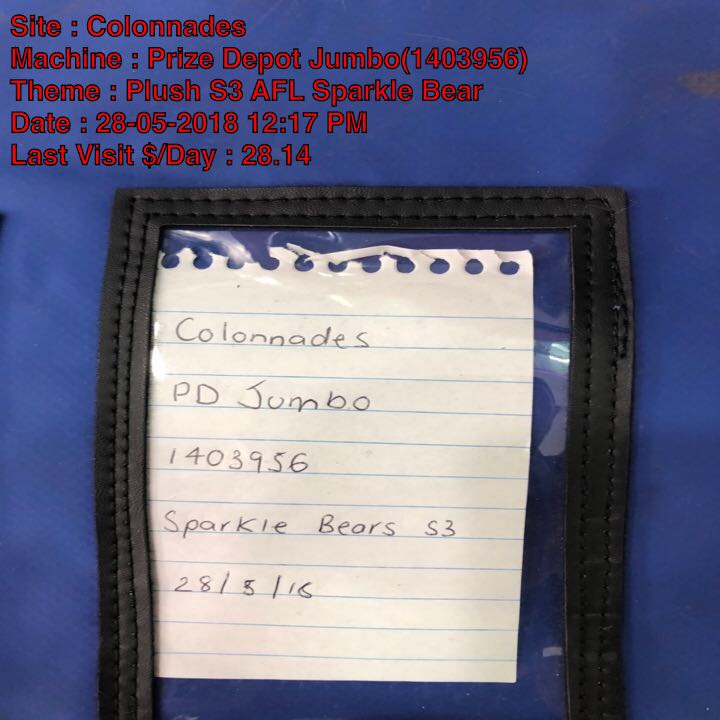 Site : Colonnades
Machine : Prize Depot Jumbo(1403956)
Theme : Plush S3 AFL Sparkle Bear
Date : 28-05-2018 12:17 PM
Last Visit $/Day : 28.14
Colonnades
PD Jumbo
1403956
Sparkle Bears S3
28/5/18